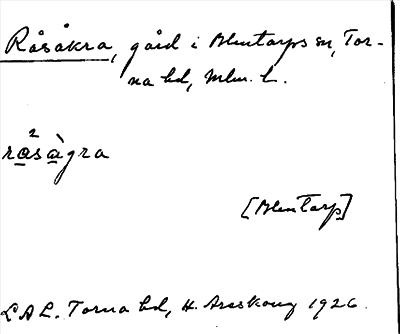 Råsåkra, gård i Blentarps sn, Tor-
na hd, Mlm. l.
rå²såg̀ra
[Blentarp]
LAL. Torna hd, H. Areskoug 1926.